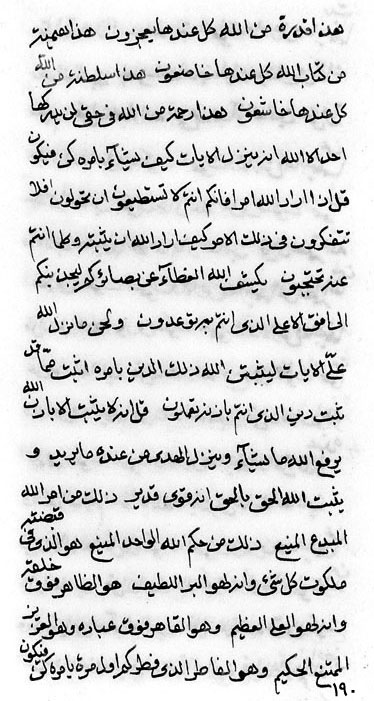 هذا قدرة من الله كل عندها يعجزون هذا هيمنة
من كتاب الله كل عندها خاضعون هذا سلطنة من الله
كل عندها خاشعون هذا رحمة من الله في حقي لن يدركها
احد الا الله انه ينزل الايات كيف يشآء بامره كن فيكون
قل اذا اراد الله امرا فانكم انتم لا تستطيعون ان تحولون افلا
تتفكرون في ذلك الامر كيف اراد الله ان يثبته وكلما انتم
عنه تحتجبون يكشف الله الغطآء عن بصائركم ليجذبنكم
الى افق الاعلى الذي انتم به توعدون ولكن ما نزل الله
علي الايات ليثبتن الله ذلك الدين بامره اثبت مما قد
ثبت دين الذي انتم باذنه تعملون قل انه لا يثبت الا باذن الله
يرفع الله ما يشآء وينزل الهدى من عنده ما يريد و
يثبت الله الحق بالحق انه قوي قدير ذلك من امر الله
المبدع المنيع ذلك من حكم الله الواحد المنيع هو الذي في قبضته
ملكوت كل شيء وانه لهو البر اللطيف هو الظاهر فوق خلقه
وانه لهو العلي العظيم وهو القاهر فوق عباده وهو العزيز
الممتنع الحكيم وهو الفاطر الذي فطركم اول مرة بامره كن فيكون
١٩٠